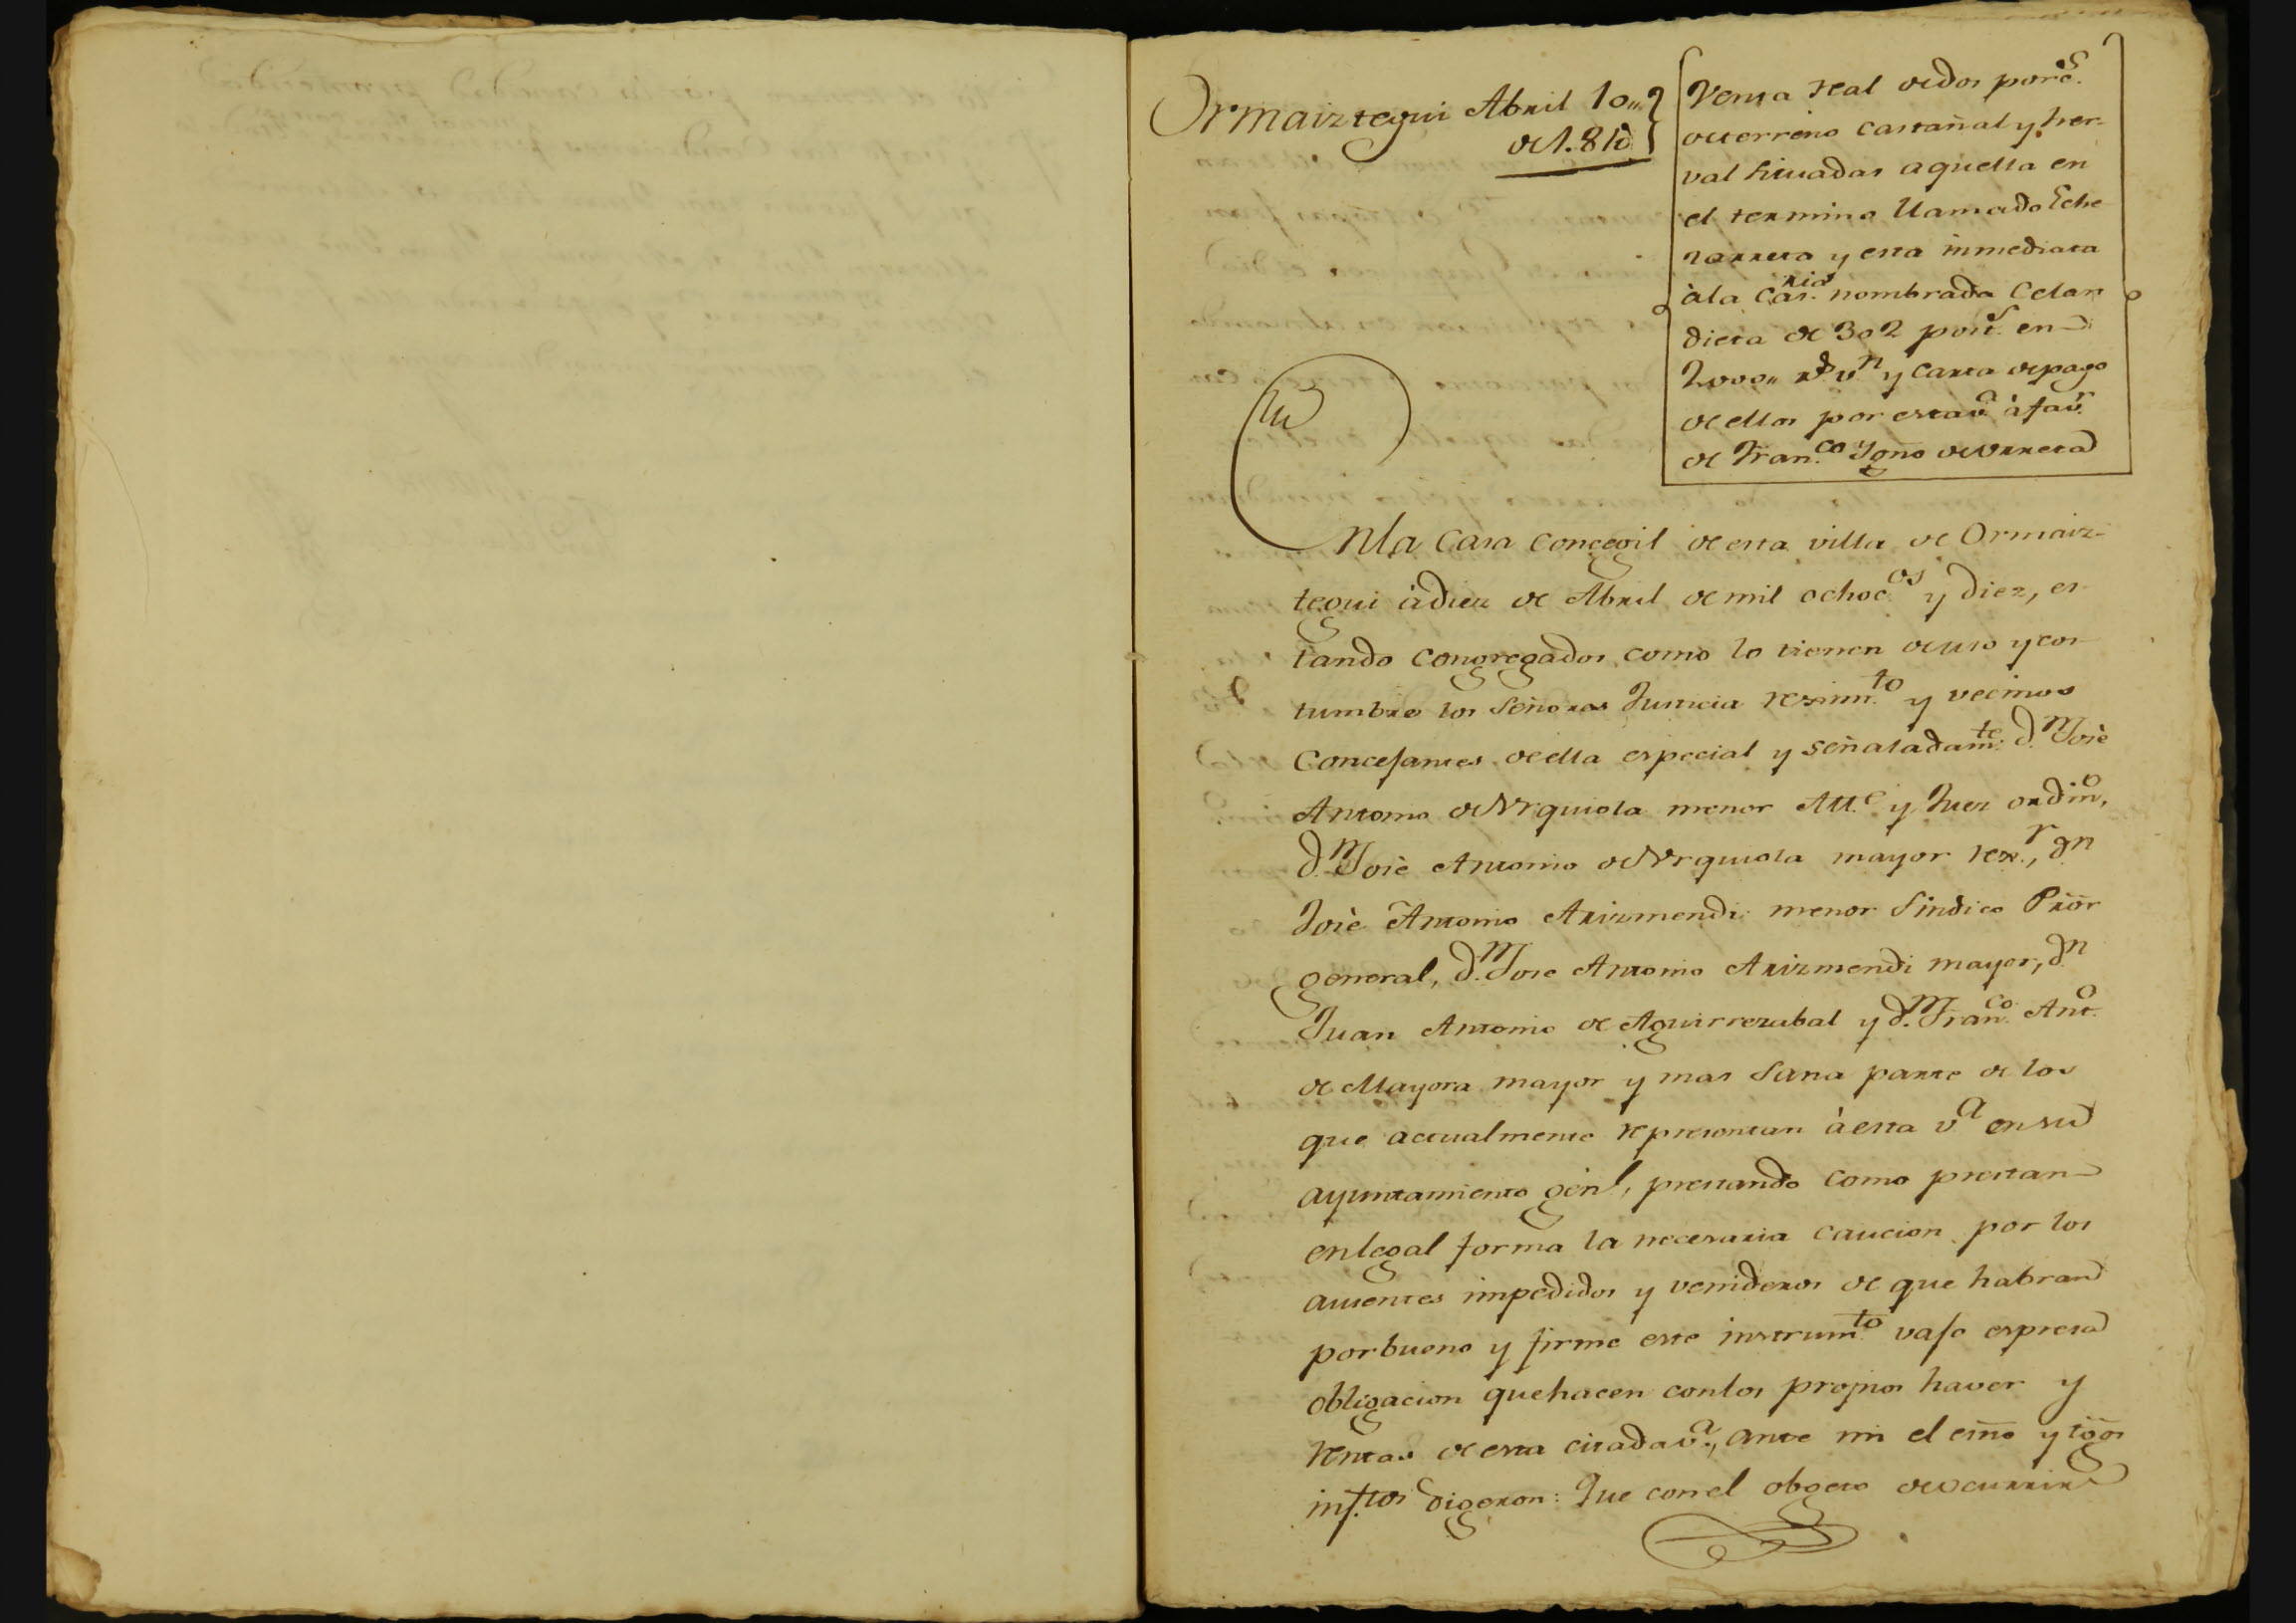 Ormaiztegui Abril 10,,
de 1.810
Venta real de dos porc.s
de terreno castañal y her-
val situadas aquella en
el termino llamado Eche
zarreta y esta inmediata
à la cas.ria nombrada Celan
dieta de 302 post.s en
2000,, r.s v.n y carta de pago
de ellos por esta v.a à fav.r
de Fran.co Ygn.o de Urreta
En la Casa Concegil de esta villa de Ormaiz-
tegui à diez de Abril de mil ochoc.os y diez, es-
tando congregados como lo tienen de uso y cos-
tumbre los Señores Justicia rexim.to y vecinos
Concejantes de ella especial y señaladam.te d.n Josè
Antonio de Urquiola menor Alc.e y Juez ordin.o,
d.n Josè Antonio de Urquiola mayor rex.r, d.n
Josè Antonio Arizmendi menor Sindico Pròr
general, d.n Jose Antonio Arizmendi mayor, d.n
Juan Antonio de Aguirrezabal y d.n Fran.co Ant.o
de Mayora mayor y mas sana parte de los
que actualmente representan à esta v.a en su
ayuntamiento gen.l, prestando como prestan
en legal forma la necesaria caucion por los
ausentes impedidos y venideros de que habran
por bueno y firme este instrum.to vajo espresa
obligacion que hacen con los propios haver y
rentas de esta citada v.a, ante mi el esno y tgos
inf.tos digeron: Que con el obgeto de ocurrir